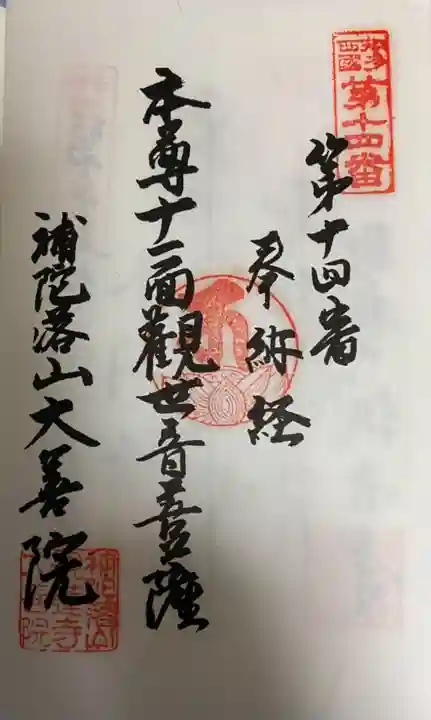 三河
四國
第十四番
第十四番
奉納経
本尊十一面觀世音菩薩
補陀落山大善院